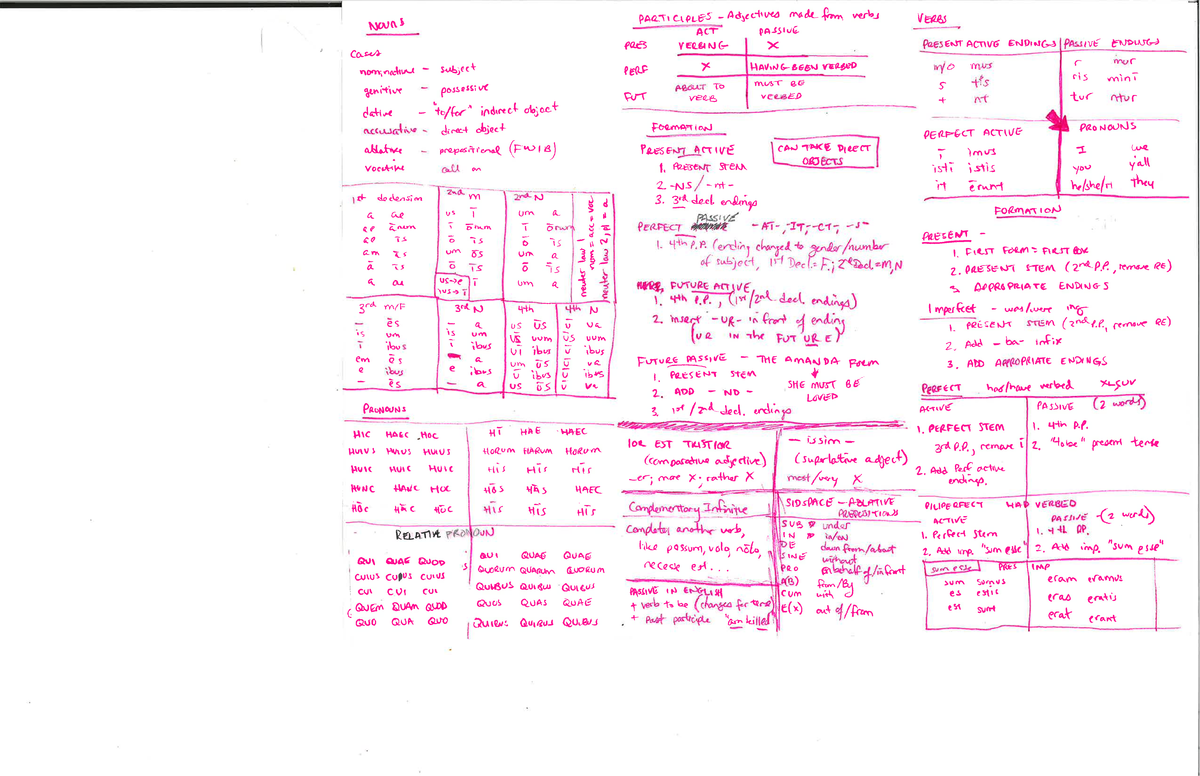 NOUNS
Cases
nominative - subject
genitive - possessive
dative - "to/for" indirect object
accusative - direct object
ablative - prepositional (FWIB)
vocative call on
1st declension
a ae
ae ārum
ae īs
am ās
ā īs
a ae
2nd M
us ī
ī ōrum
ō īs
um ōs
ō īs
us→e ī
ius→ī
2nd N
um a
ī ōrum
ō īs
um a
ō īs
um a
neuter law 1
nom = acc = voc
neuter law 2, pl = a
3rd M/F
- ēs
is um
ī ibus
em ēs
e ibus
- ēs
3rd N
- a
is um
ī ibus
- a
e ibus
- a
4th
us ūs
ūs uum
uī ibus
um ūs
ū ibus
us ūs
4th N
ū ua
ūs uum
ū ibus
ū ua
ū ibus
ū ua
PRONOUNS
HIC HAEC HOC
HUIUS HUIUS HUIUS
HUIC HUIC HUIC
HUNC HANC HOC
HŌC HĀC HŌC
HĪ HAE HAEC
HORUM HARUM HORUM
HĪS HĪS HĪS
HŌS HĀS HAEC
HĪS HĪS HĪS
RELATIVE PRONOUN
QUI QUAE QUOD
CUIUS CUIUS CUIUS
CUI CUI CUI
QUEM QUAM QUOD
QUO QUA QUO
QUI QUAE QUAE
QUORUM QUARUM QUORUM
QUIBUS QUIBUS QUIBUS
QUOS QUAS QUAE
QUIBUS QUIBUS QUIBUS
PARTICIPLES - Adjectives made from verbs
ACT PASSIVE
PRES VERBING X
PERF X HAVING BEEN VERBED
FUT ABOUT TO VERB MUST BE VERBED
FORMATION
CAN TAKE DIRECT OBJECTS
PRESENT ACTIVE
1. PRESENT STEM
2. -NS/-nt-
3. 3rd decl. endings
PERFECT PASSIVE -AT-, -IT-, -CT-, -S-
1. 4th P.P. (ending changed to gender/number
of subject, 1st Decl. = F.; 2nd Decl = M, N
FUTURE ACTIVE
1. 4th P.P., (1st/2nd decl. endings)
2. insert -UR- in front of ending
(UR IN THE FUT UR E)
FUTURE PASSIVE - THE AMANDA FORM
1. PRESENT STEM
2. ADD -ND-
3. 1st/2nd decl. endings
SHE MUST BE
LOVED
IOR EST TRISTIOR
(comparative adjective)
-er; more X; rather X
- issim -
(superlative adject)
most/very X
Complementary Infinitive
Completes another verb,
like possum, volo, nōlo,
necesse est...
PASSIVE IN ENGLISH
+ verb to be (changes for tense)
+ Past participle "am killed"
SIDSPACE - ABLATIVE PREPOSITIONS
SUB under
IN in/on
DE down from/about
SINE without
PRO on behalf of/in front
A(B) from/By
CUM with
E(X) out of/from
VERBS
PRESENT ACTIVE ENDINGS
m/o mus
s tis
t nt
PASSIVE ENDINGS
r mur
ris mini
tur ntur
PERFECT ACTIVE
ī imus
istī istis
it ērunt
PRONOUNS
I we
you y'all
he/she/it They
FORMATION
PRESENT -
1. FIRST FORM = FIRST BOX
2. PRESENT STEM (2nd P.P., remove RE)
3. APPROPRIATE ENDINGS
Imperfect - was/were ing
1. PRESENT STEM (2nd P.P., remove RE)
2. Add - ba- infix
3. ADD APPROPRIATE ENDINGS
PERFECT has/have verbed XLSUV
ACTIVE
1. PERFECT STEM
3rd P.P., remove i
2. Add Perf active
endings.
PASSIVE (2 words)
1. 4th P.P.
2. "to be" present tense
PLUPERFECT HAD VERBED
ACTIVE
1. Perfect Stem
2. Add imp. "sum esse"
PASSIVE - (2 words)
1. 4th P.P.
2. Add imp. "sum esse"
sum esse PRES IMP
sum sumus eram eramus
es estis eras eratis
est sunt erat erant